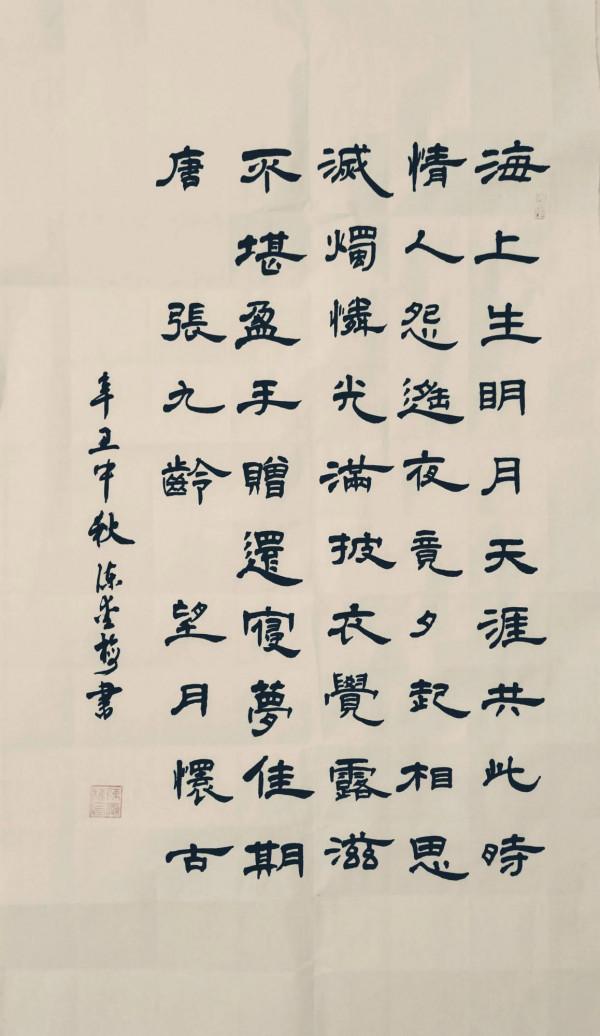 海上生明月天涯共此時
情人怨遙夜竟夕起相思
滅燭憐光滿披衣覺露滋
不堪盈手贈還寢夢佳期
唐 張九齡 望月懷古
辛丑中秋 陈梅书